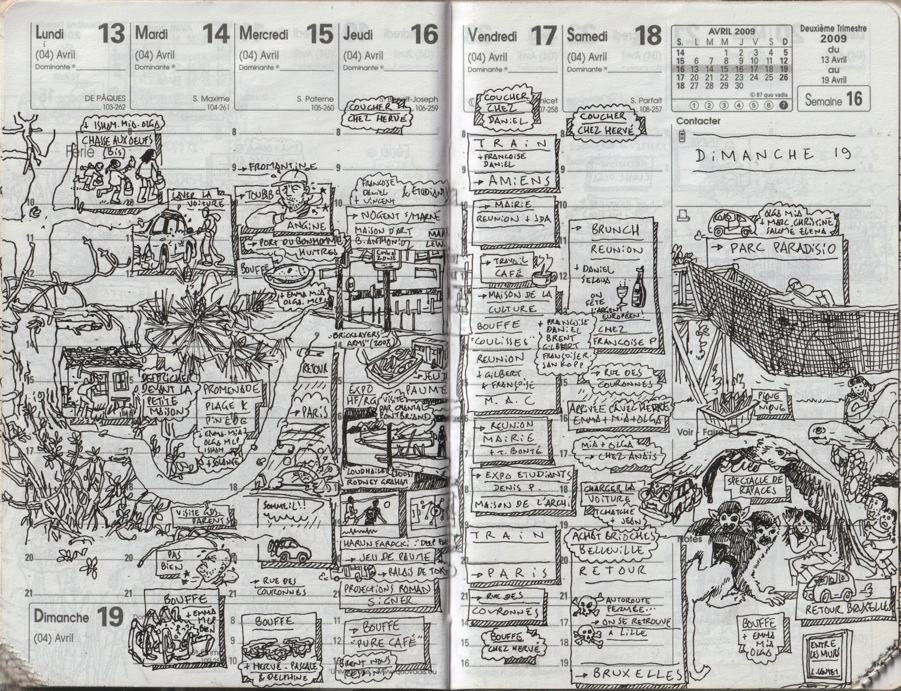 Lundi 13
(04) Avril
Dominante
DE PÂQUES
103-262
+ ISHAM. MIA. OLGA
CHASSE AUX OEUFS
(BIS)
Férié
DEVANT LA
PETITE
MAISON
Mardi 14
(04) Avril
Dominante
S. Maxime
104-261
LAVER LA
VOITURE
PROMENADE
PLAGE &
+ EMMA MIA
OLGA MLP
ISHAM
+ SOLANE
VISITE
PARENTS
PAS
BIEN
BOUFFE
+ EMMA
Mercredi 15
(04) Avril
Dominante
S. Paterne
105-260
→ FROMANTINE
TOUBIB
ANGINE
→ PORT DU BONHOMME
HUITRES
BOUFFE
+ EMMA MIA
OLGA. MLP
RETOUR
→ PARIS
SOMMEIL!!
→ RUE DES
COURONNES
BOUFFE
+ HERVÉ - PASCALE
& DELPHINE
Jeudi 16
(04) Avril
Dominante
106-259
COUCHER
CHEZ HERVÉ
FRANÇOISE
DANIEL
+ VINCENT
→ NOGENT S/MARNE
MAISON D'ART
B. ANTHONIOZ
"BRICKLAYERS
ARMS" (2008)
EXPO
HF/RG
VISITE
PAR CHANTAL
PONTBRIAND
LOUDHAILER
RODNEY GRAHAM
HARUN FAROCKI
→ JEU DE PAUME
→ PALAIS DE TOK
PROJECTIONS ROMAN
SIGNER
→ BOUFFE
"PURE CAFÉ"
BRENT NOUS
REJOINT
Dimanche 19
(04) Avril
Vendredi 17
(04) Avril
Dominante
COUCHER
CHEZ
DANIEL
TRAIN
+ FRANÇOISE
DANIEL
→ AMIENS
→ MAIRIE
REUNION + SDA
→ TRAVAIL
CAFÉ
→ MAISON DE LA
CULTURE
BOUFFE
"COULISSES"
+ FRANÇOISE
DANIEL
BRENT
GILBERT
FRANÇOISE
REUNION
+ GILBERT
& FRANÇOISE
M.A.C
→ REUNION
MAIRIE
+ T. BONTÉ
→ EXPO ETUDIANTS
DENIS P.
MAISON DE L'ARCHI
TRAIN
→ PARIS
→ RUE DES
COURONNES
BOUFFE
CHEZ HERVÉ
Samedi 18
(04) Avril
Dominante
S. Parfait
108-257
COUCHER
CHEZ HERVÉ
BRUNCH
REUNION
+ DANIEL
ON
FÊTE
L'ARGENT
EUROPÉEN!
CHEZ
FRANÇOISE P
→ RUE DES
COURONNES
ARRIVÉE CHEZ HERVÉ
EMMA + MIA + OLGA
MIA + OLGA
→ CHEZ ANAÏS
CHARGER LA
VOITURE
TCHATCHE
+ JEAN
ACHAT BRIOCHES
BELLEVILLE
RETOUR
AUTOROUTE
FERMÉE...
→ ON SE RETROUVE
À LILLE
→ BRUXELLES
AVRIL 2009
S. L M M J V S D
14 1 2 3 4 5
15 6 7 8 9 10 11 12
16 13 14 15 16 17 18 19
17 20 21 22 23 24 25 26
18 27 28 29 30
© 87 quo vadis
① ② ③ ④ ⑤ ⑥ ❼
Deuxième Trimestre
2009
du
13 Avril
au
19 Avril
Semaine 16
Contacter
DIMANCHE 19
OLGA MIA
+ MARC CHRISTINE
SALOMÉ ELENA
→ PARC PARADISIO
PIQUE
NIQUE
Voir - Faire
SPECTACLE DE
RAPACES
Notes
RETOUR BRUXELLES
BOUFFE
+ EMMA
MIA
OLGA
ENTRE
LES MURS